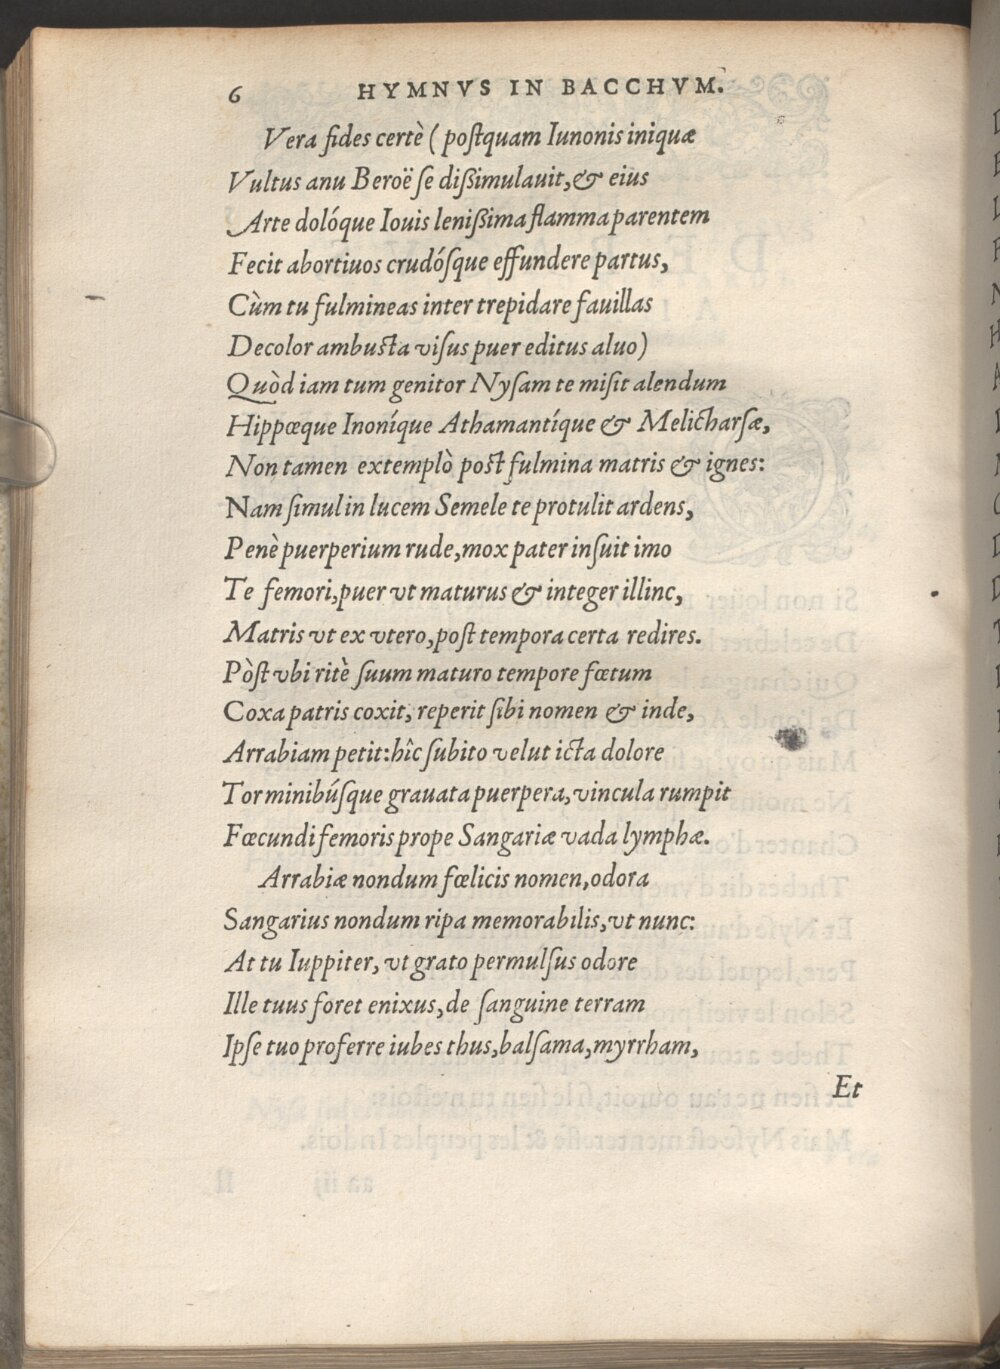 6 HYMNVS IN BACCHVM.
Vera fides certè ( poſtquam Iunonis iniquæ
Vultus anu Beroë ſe dißimulauit, & eius
Arte dolóque Iouis lenißima flamma parentem
Fecit abortiuos crudóſque effundere partus,
Cùm tu fulmineas inter trepidare fauillas
Decolor ambusta viſus puer editus aluo)
Quòd iam tum genitor Nyſam te miſit alendum
Hippœque Inoníque Athamantíque & Melicharſæ,
Non tamen extemplò post fulmina matris & ignes:
Nam ſimul in lucem Semele te protulit ardens,
Penè puerperium rude, mox pater inſuit imo
Te femori, puer vt maturus & integer illinc,
Matris vt ex vtero, poſt tempora certa redires.
Pòſt vbi ritè ſuum maturo tempore fœtum
Coxa patris coxit, reperit ſibi nomen & inde,
Arrabiam petit: hîc ſubito velut icta dolore
Torminibúſque grauata puerpera, vincula rumpit
Fœcundi femoris prope Sangariæ vada lymphæ.
Arrabiæ nondum fœlicis nomen, odora
Sangarius nondum ripa memorabilis, vt nunc:
At tu Iuppiter, vt grato permulſus odore
Ille tuus foret enixus, de ſanguine terram
Ipſe tuo proferre iubes thus, balſama, myrrham,
Et